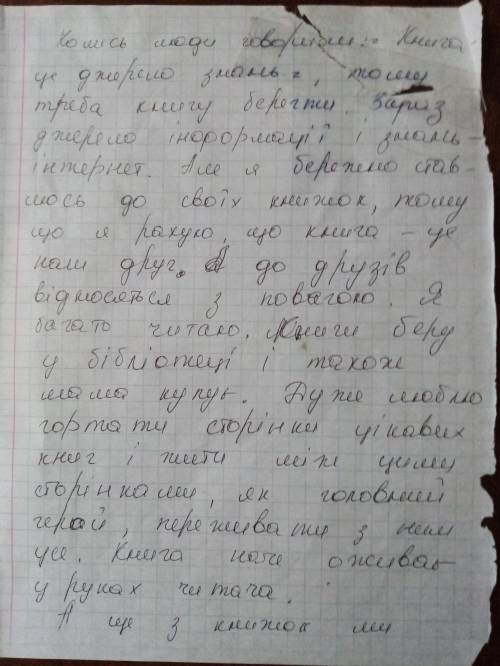 Колись люди говорили:" Книга
це джерело знань", тому
треба книгу берегти. Зараз
джерело інформації і знань-
інтернет. Але я бережно став-
люсь до своїх книжок, тому
що я рахую, що книга - це
наш друг. А до друзів
відносяться з повагою. Я
багато читаю. Книги беру
у бібліотеці і також
мама купує. Дуже люблю
гортати сторінки цікавих
книг і жити між цими
сторінками, як головний
герой, переживати з ним
усе. Книга наче оживає
у руках читача.
А ще з книжок ми